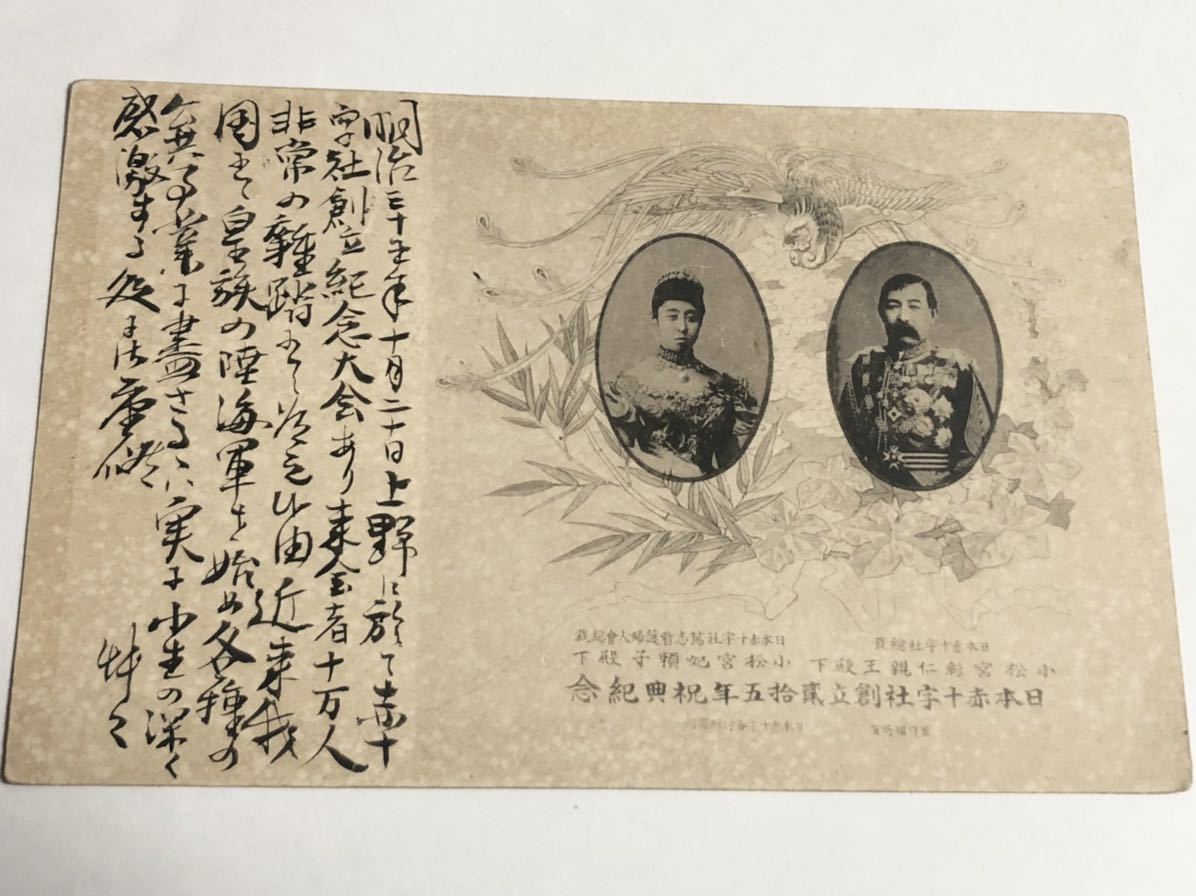 明治三十五年十月二十日上野に於て赤十
字社創立紀念大会あり来会者十万人
非常の雑踏由近来我
国にて皇族の陸海軍を始め各種の
公共事業に盡さるゝハ実に小生の深く
感激する処に御座候 艸々
日本赤十字社總裁
小松宮彰仁親王殿下
日本赤十字社篤志看護婦人會總裁
小松宮妃頼子殿下
日本赤十字社創立貳拾五年祝典紀念